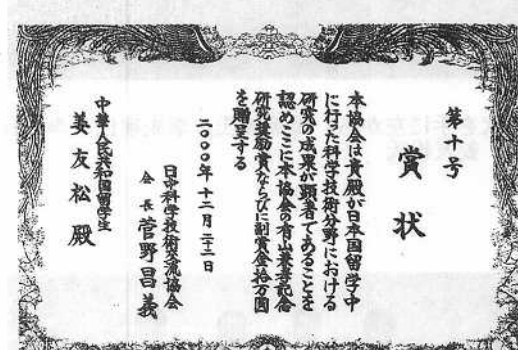 第十号
賞状
本協会は貴殿が日本国留学中
に行った科学技術分野における
研究の成果が顕著であることを
認めここに本協会の有山兼孝記念
研究奨励賞ならびに副賞金拾万円
を贈呈する
二〇〇〇年十二月二十二日
日中科学技術交流協会
会長 菅野昌義
中華人民共和国留学生
姜友松殿